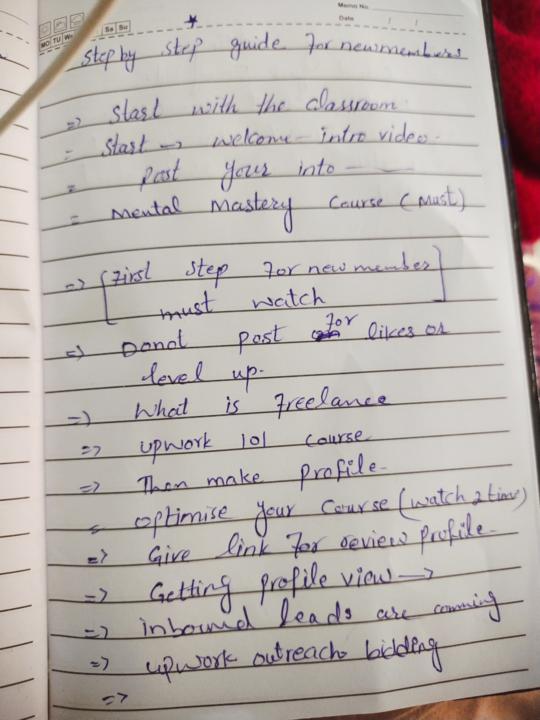 Memo No.
Date / /
Mo Tu We Sa Su
Step by step guide for new members
=> Start with the classroom
- Start -> welcome - intro video.
= Post your into —
= Mental Mastery Course (Must)
=> [First step for new member
must watch]
=> Donot post for likes or
level up.
=> What is freelance
=> upwork 101 course
=> Then make profile.
optimise your course (watch 2 time)
=> Give link for review profile.
=> Getting profile view ->
=> inbound leads are comming
=> upwork outreach bidding
=>